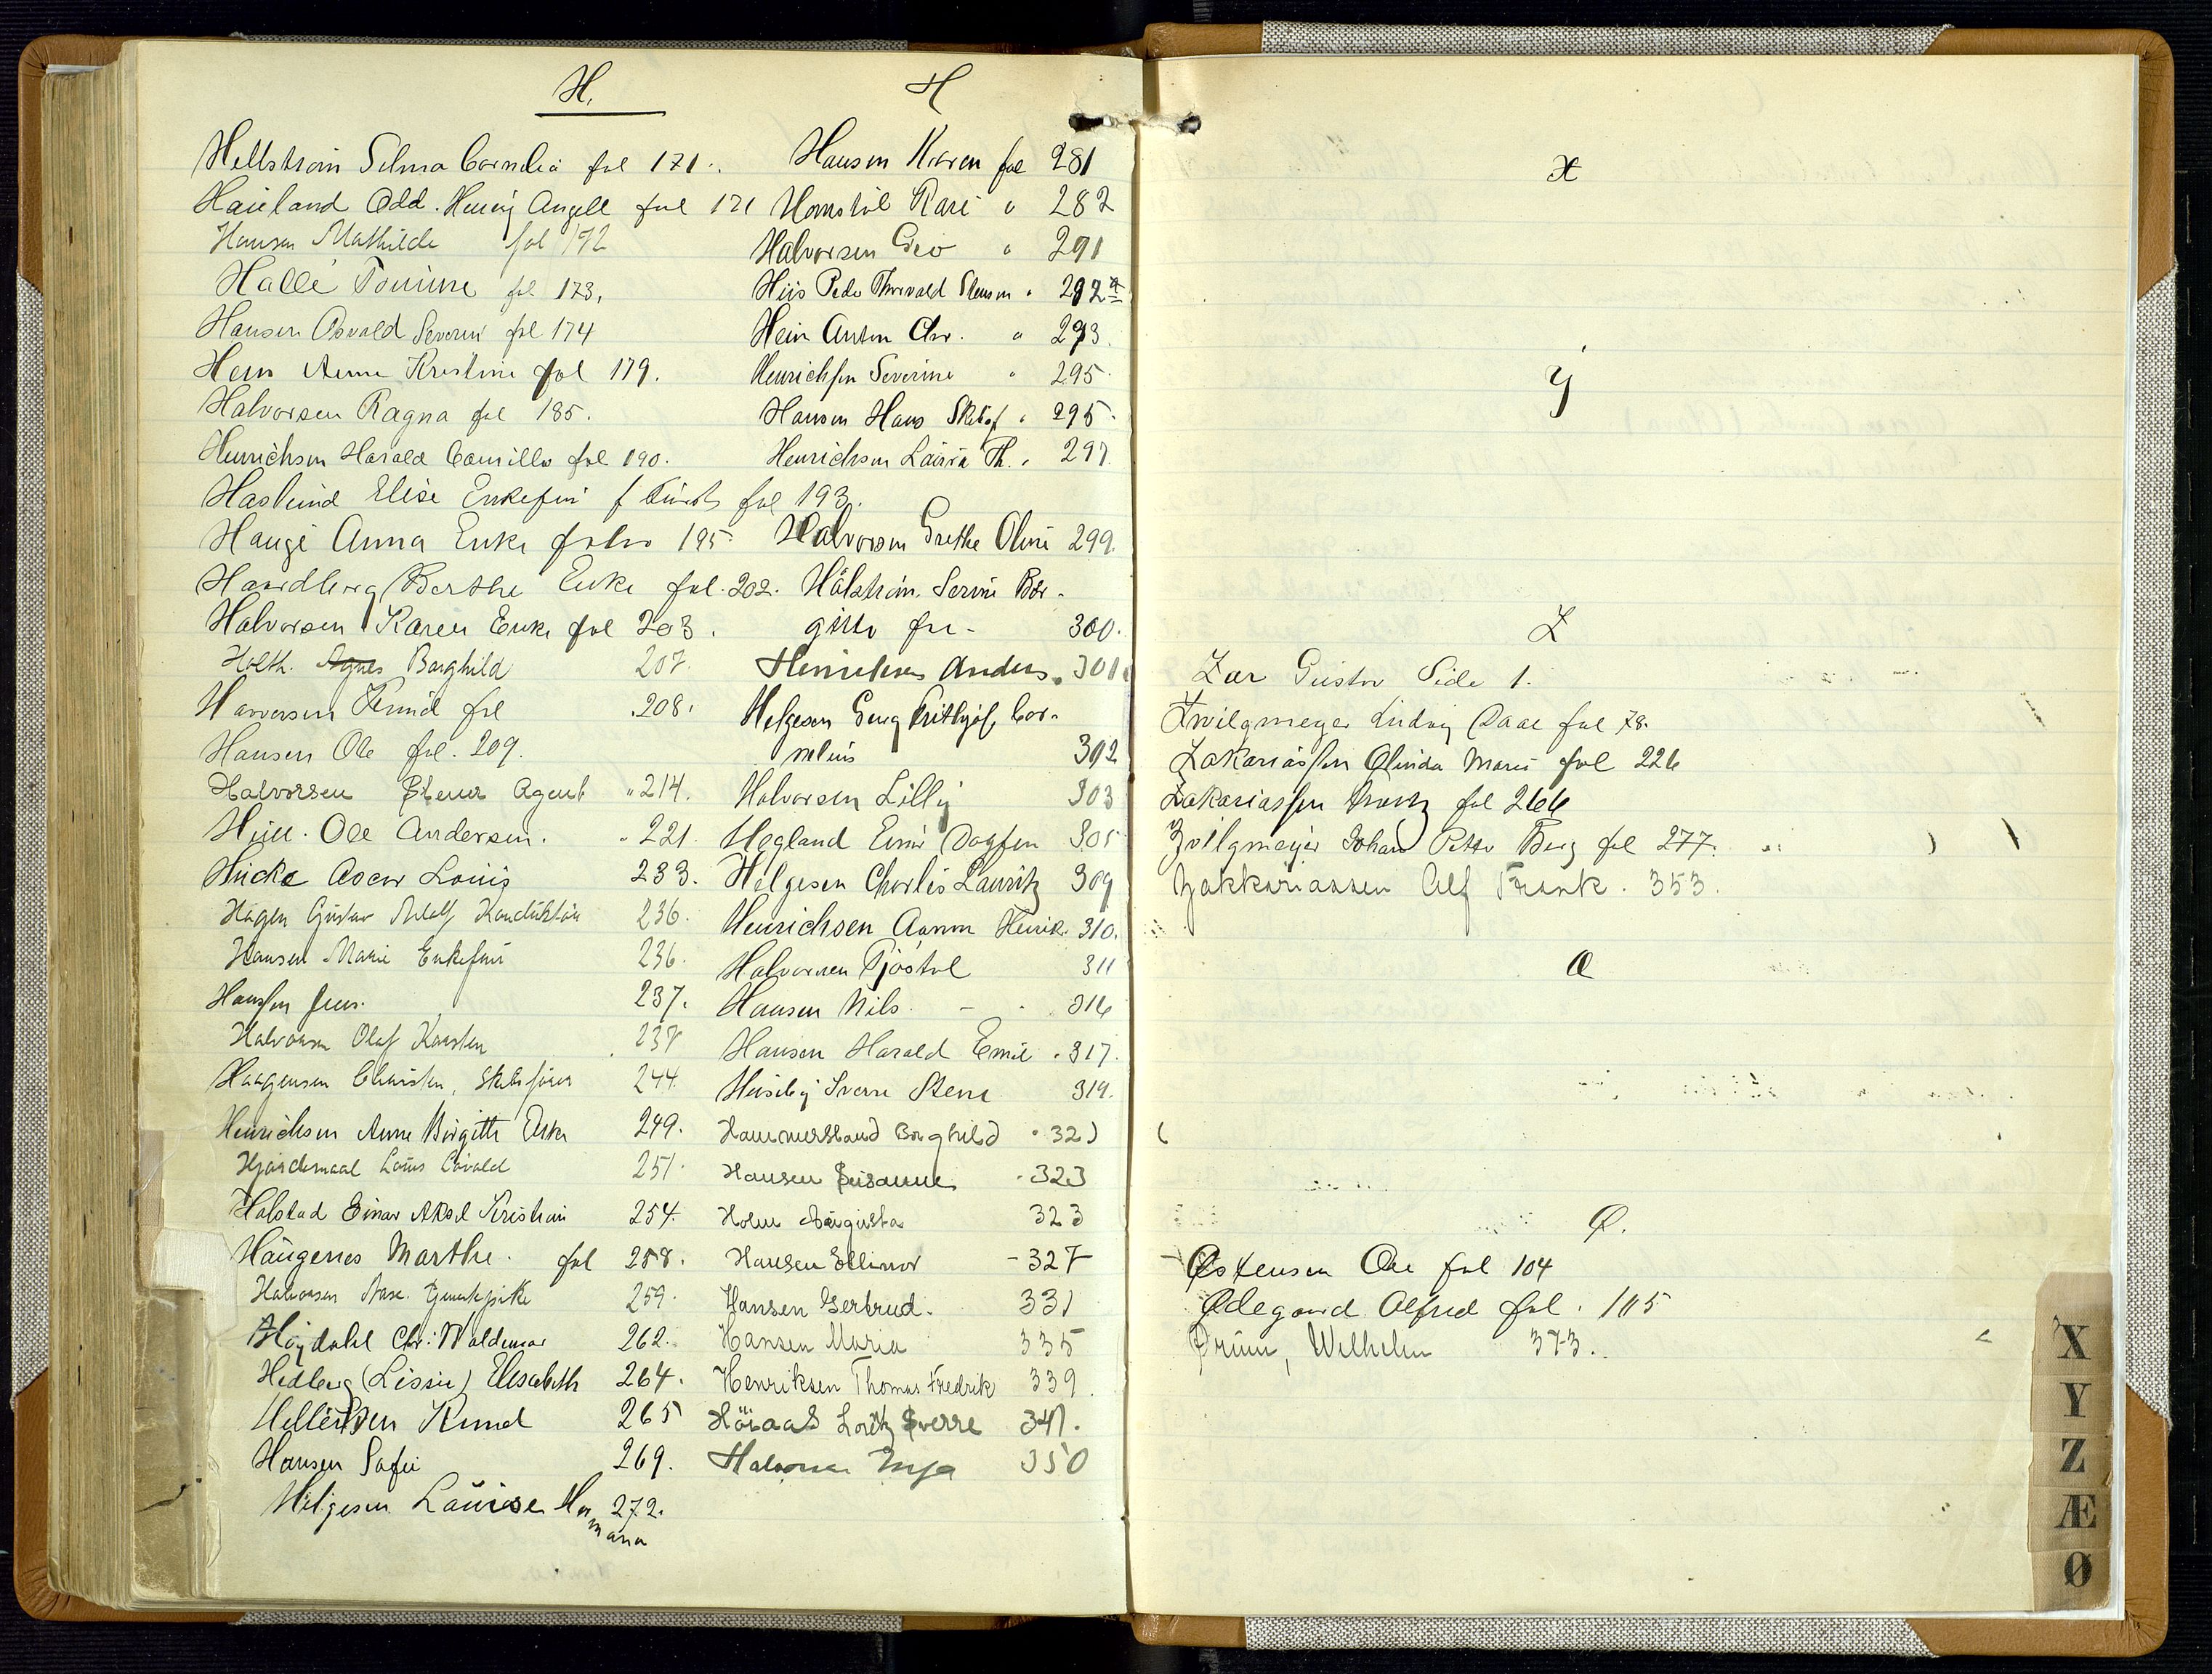 H.
Hellstrøm Selma Cornelia fol 171.
Haieland Odd. Henrij Angell fol 171
Hansen Mathilde fol 172
Halle Tomine fol 173.
Hansen Osvald Severin fol 174
Hein Anne Kristine fol 179.
Halvorsen Ragna fol 185.
Henrichsen Harald Camillo fol 190.
Haslund Elise Enkefru f fol 193.
Hauge Anna Enke folio 195.
Berthe Enke fol. 202.
Halvorsen Karen Enke fol 203.
Holth. Agnes Borghild 207.
Knud fol 208.
Hansen Ole fol. 209.
Halvorsen Agent " 214.
Ole Andersen. " 221.
Hucke Oscar Louis 233.
Hagen Gustav Adolf Konduktør 236.
Hansen Marie Enkefru 236.
Hanssen Jens. 237.
Halvorsen Olaf Karsten 237
Haagensen Christen, Skibsfører 244.
Henrichsen Anne Birgitte Enke 249.
Hjardemaal Louis Osvald 251.
Halstad Einar Aksel Kristian 254.
Haugenes Marthe. fol 258.
Halvorsen Aase. 259.
Høydahl Chr. Waldemar 262.
Hedberg (Lissie) Elisabeth 264.
Knud 265
Hansen Sofie 269.
Helgesen Lauise Her 272.
mana
H
Hansen Karen fol 281
Kari " 282
Halvorsen Geo " 291
Hiis Peder Thorvald Stensen " 292 a
Hein Anton Chr. " 293.
Henrichsen Severine " 295.
Hansen Hans " 295.
Henrichsen Laura Th. " 297.
Halvorsen Grethe Oline 299.
Bir-
gitte fru - 300.
Henriksen Anders. 301.
Helgesen Georg Frithjof Cor-
nelius 302
Halvorsen Lilly 303
Hegland Einar Dagfin 305
Helgesen Charles Lauritz 309
Henrichsen Henrik. 310.
Halvorsen Tjøstol 311
Hansen Nils. - 316
Hansen Harald Emil " 317.
Huseby Sverre Stene 319.
Hammersland Borghild " 321
Hansen Susanne " 323
Holm Augusta 323
Hansen Ellinor - 327
Hansen Gertrud. 331
Hansen Maria 335
Henriksen Thomas Fredrik 339.
Höiaas Loritz Sverre 341.
Halvorsen Inga 350
X
Y
Z
Zar Gustav Side 1.
Zwilgmeyer Ludvig Daae fol 78.
Zakariassen Olinda Marie fol 226
Zakariassen fol 266
Zvilgmeyer Johan Petter Berg fol 277.
Zakkariassen Alf Frank. 353.
Æ
Ø.
Østensen Ole fol 104
Ødegaard Alfred fol. 105
Wilhelm 373.
X
Y
Z
Æ
Ø